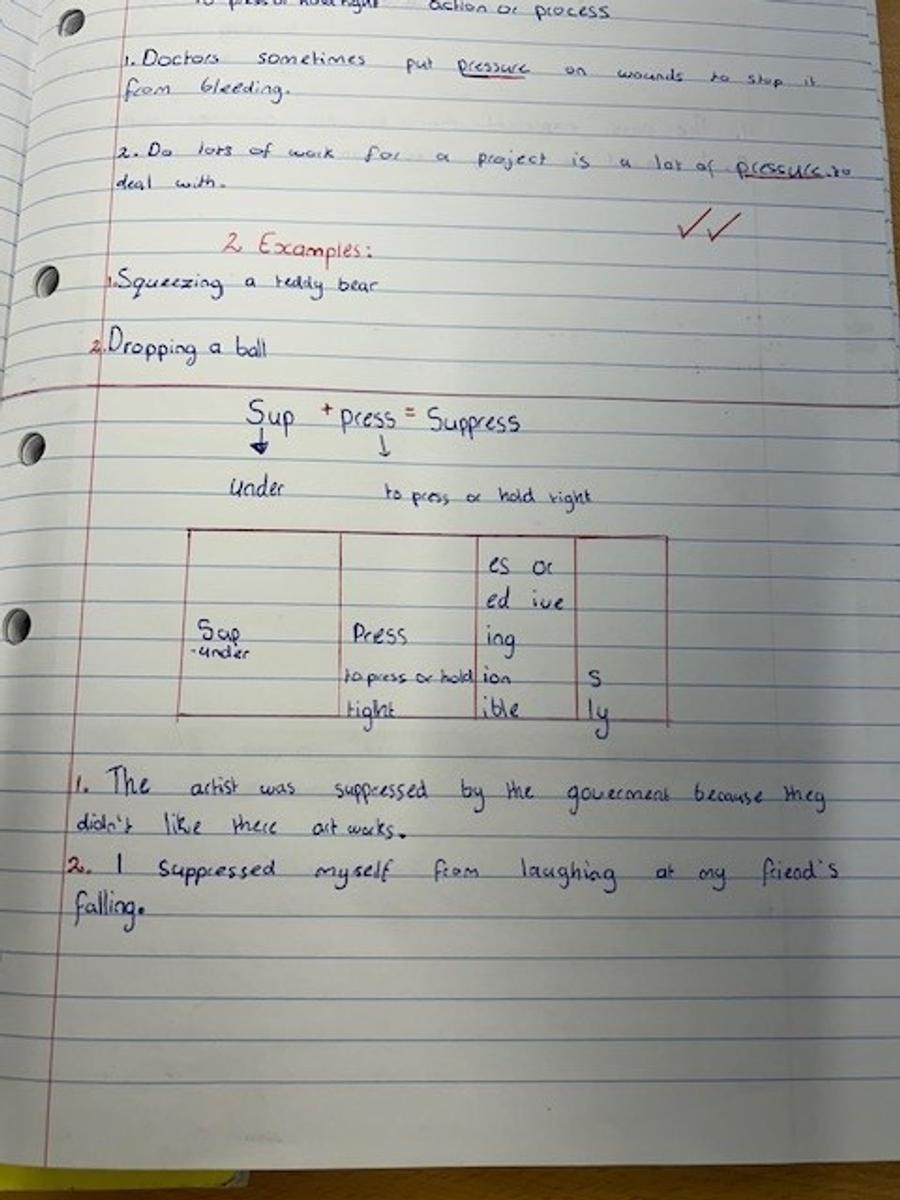 to press or hold tight action or process
1. Doctors sometimes put pressure on wounds to stop it
from bleeding.
2. Do lots of work for a project is a lot of pressure.to
deal with.
2 Examples:
1.Squeezing a teddy bear
2.Dropping a ball
Sup + press = Suppress
under to press or hold tight
es or
ed ive
Sup Press ing
-under to press or hold ion s
tight ible ly
1. The artist was suppressed by the goverment because they
didn't like there art works.
2. I suppressed myself from laughing at my friend's
falling.